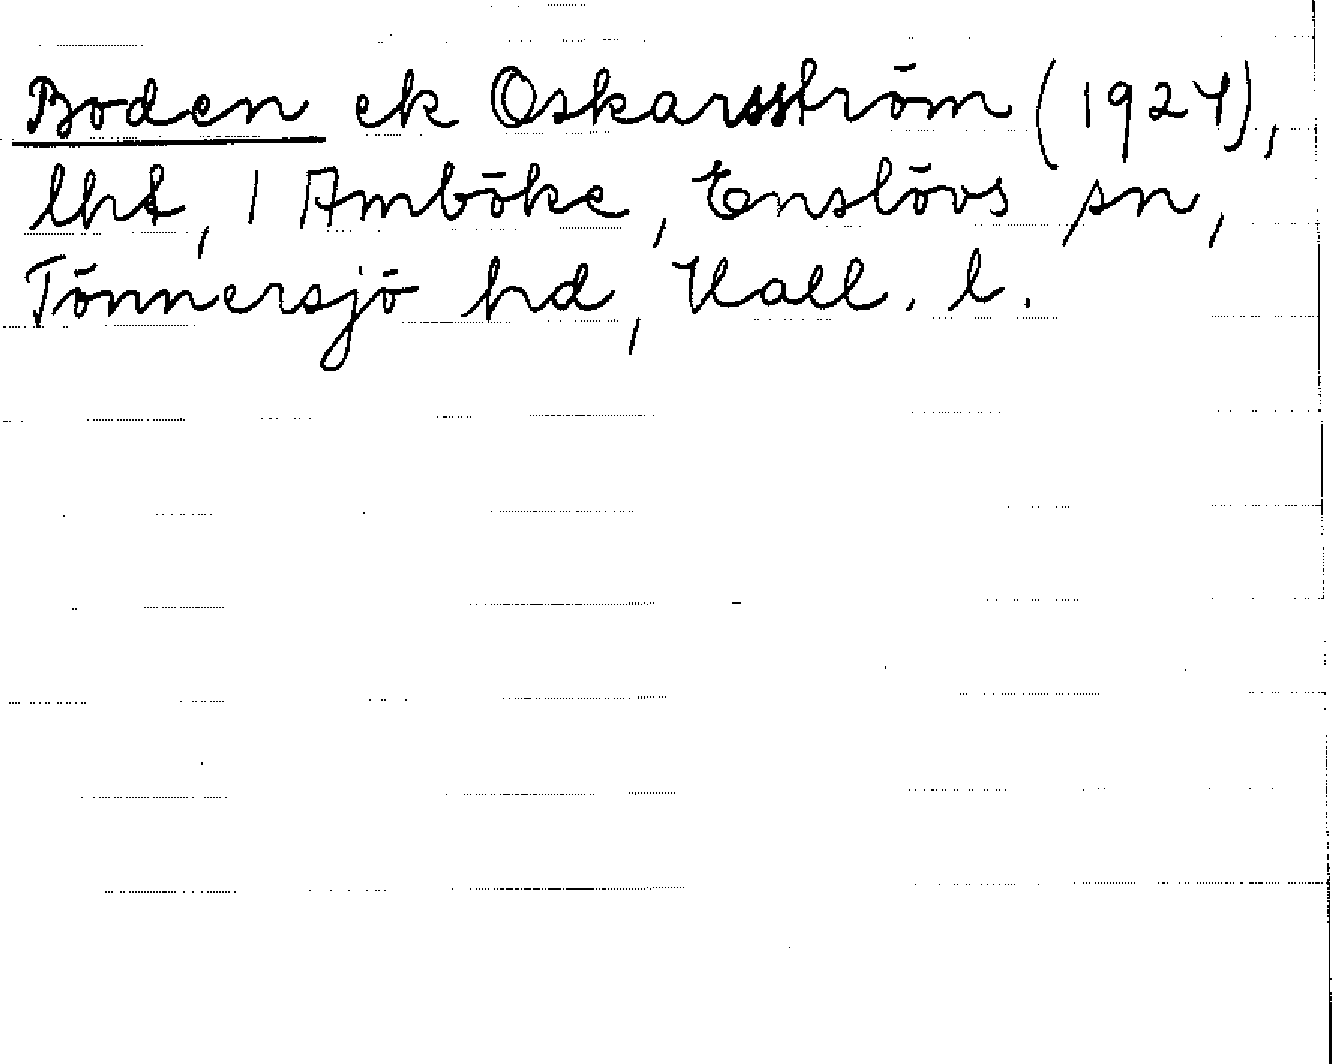 Boden ek Oskarsström (1924),
lht, 1 Amböke, Enslövs sn,
Tönnersjö hd, Hall. l.